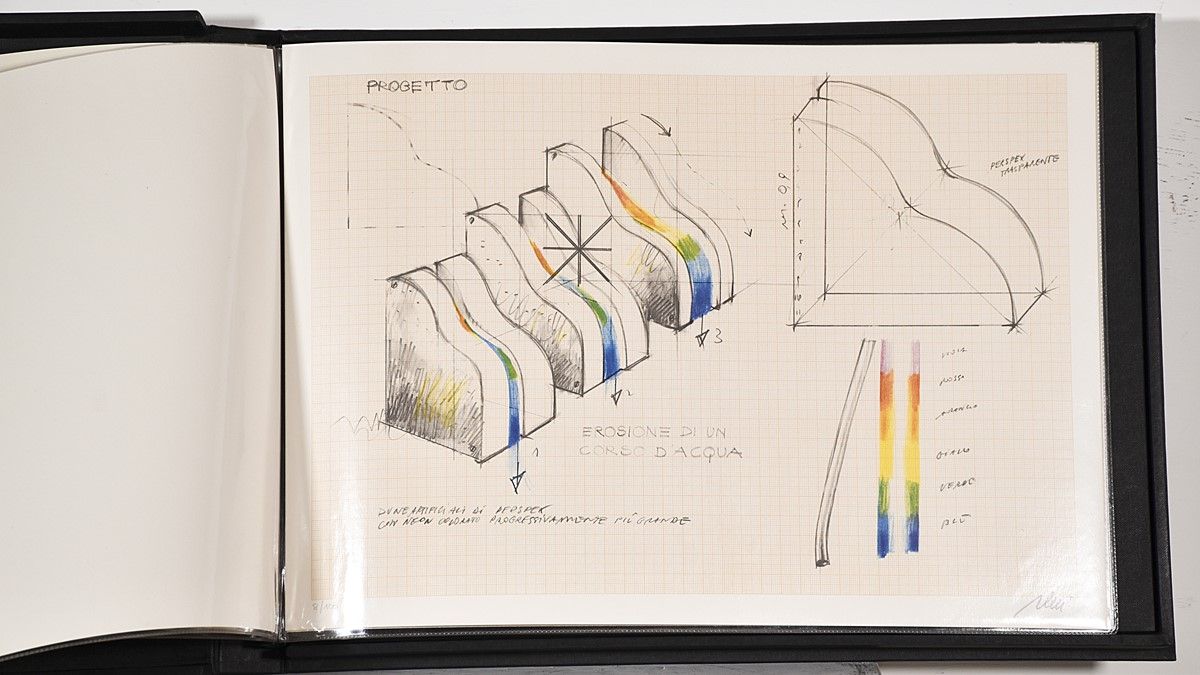 PROGETTO
PERSPEX
TRASPARENTE
3
2
1
EROSIONE DI UN
CORSO D'ACQUA
VIOLA
ROSSO
ARANCIO
GIALLO
VERDE
BLÙ
DUNE ARTIFICIALI DI PERSPEX
CON NEON COLORATO PROGRESSIVAMENTE PIÙ GRANDE